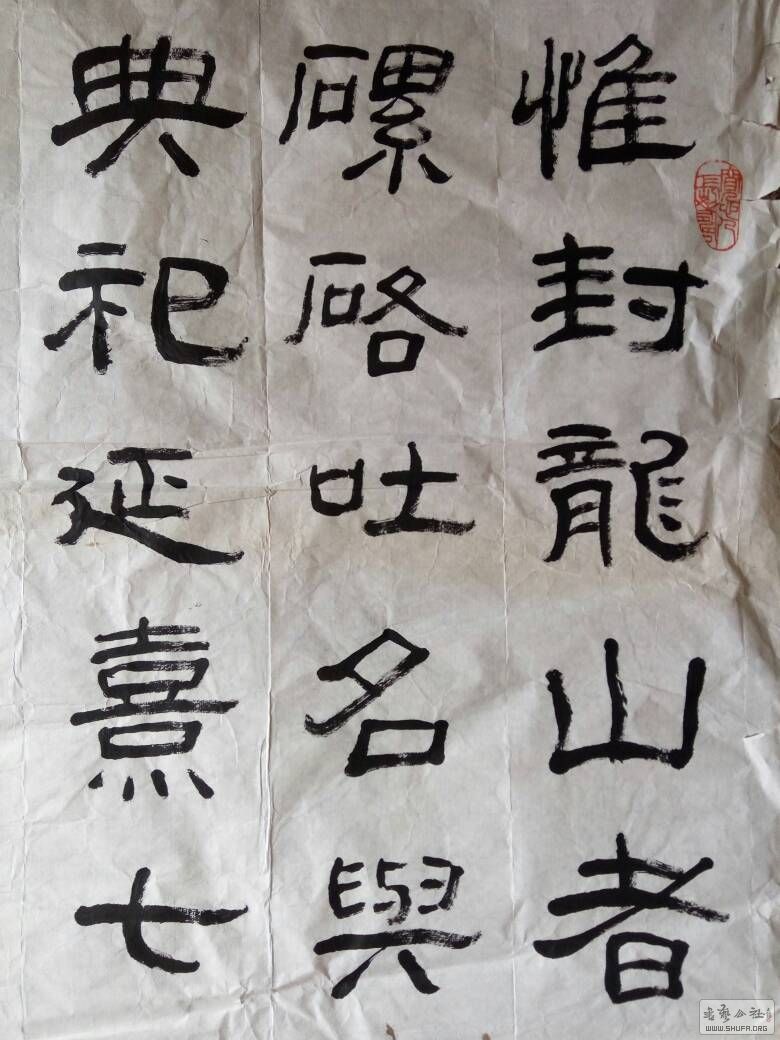 惟封龍山者
磥硌吐名與
典祀延熹七
書藝公社
WWW.SHUFA.ORG